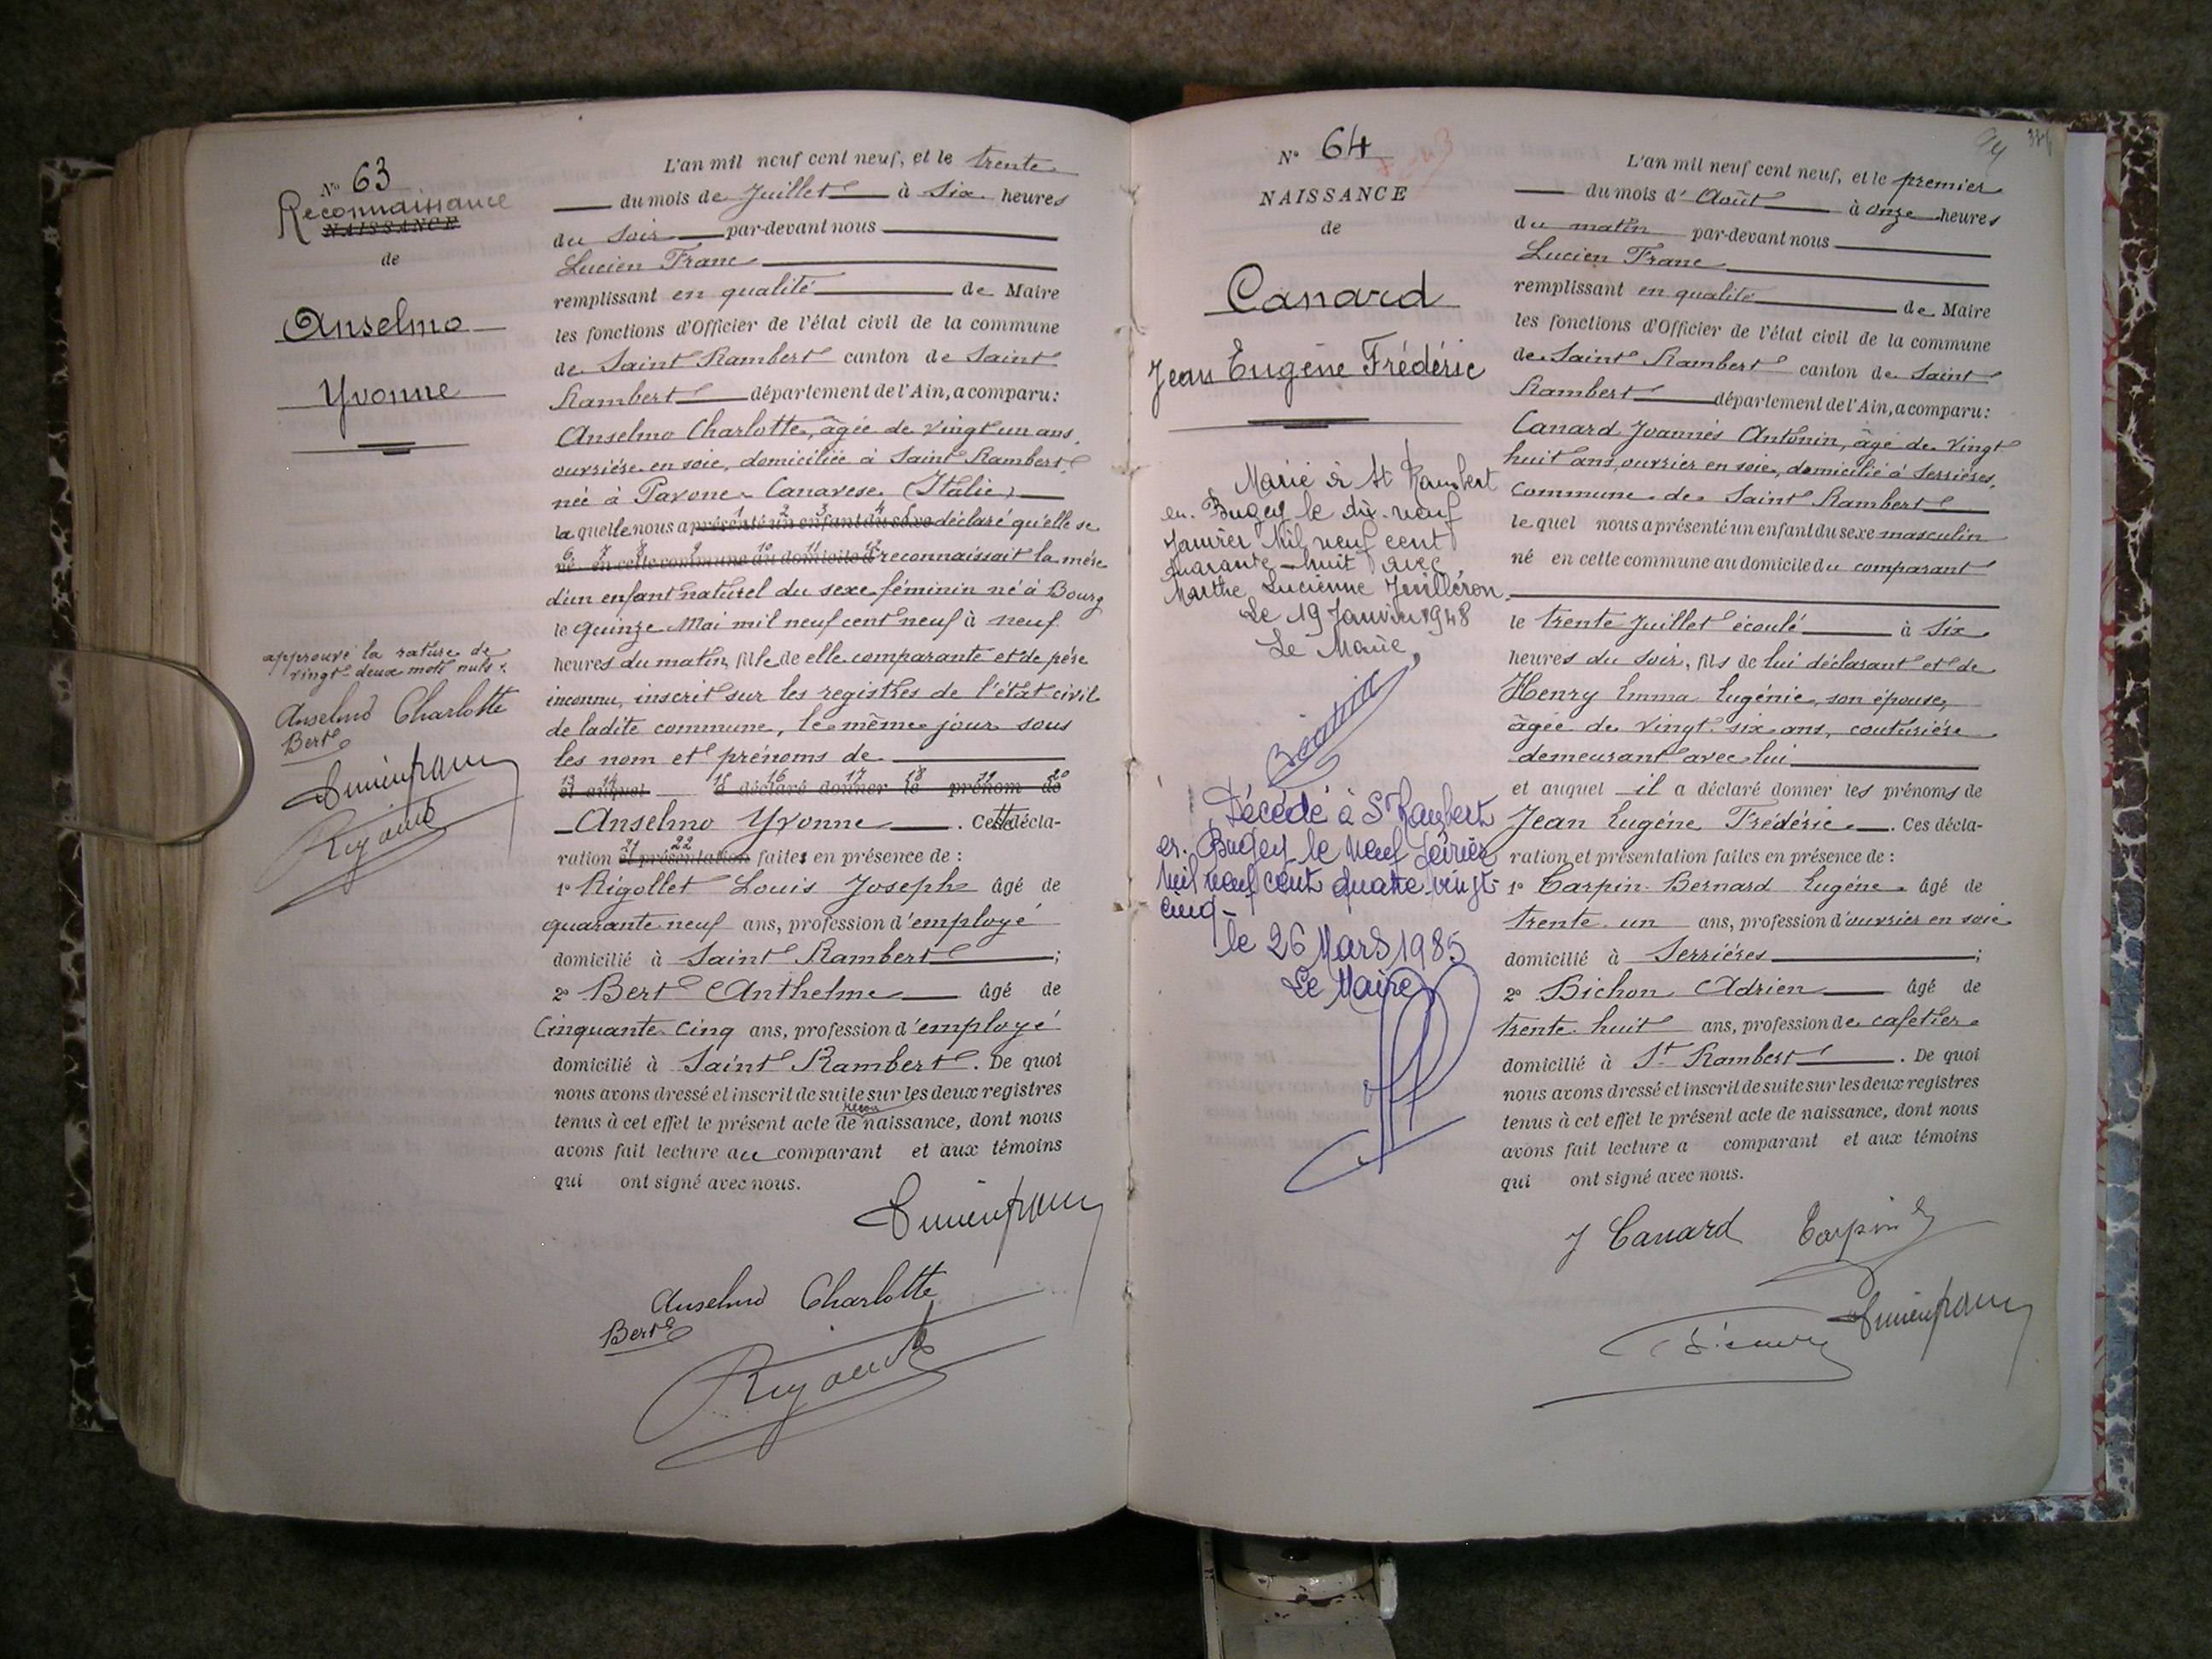 N° 63
Reconnaissance
NAISSANCE
de
Anselmo
Yvonne
approuvé la rature de
vingt-deux mots nuls.
Anselmo Charlotte
Bert
L'an mil neuf cent neuf, et le trente
du mois de Juillet à six heures
du soir par-devant nous
Lucien Franc
remplissant en qualité de Maire
les fonctions d'Officier de l'état civil de la commune
de Saint Rambert canton de Saint
Rambert département de l'Ain, a comparu:
Anselmo Charlotte, âgée de vingt un ans,
ouvrière en soie, domiciliée à Saint Rambert
née à Pavone-Canavese (Italie)
la quelle nous a présenté un enfant du sexe déclaré qu'elle se
né en cette commune au domicile d reconnaissait la mère
d'un enfant naturel du sexe féminin né à Bourg
le quinze Mai mil neuf cent neuf à neuf
heures du matin, fille de elle comparante et de père
inconnu, inscrit sur les registres de l'état civil
de ladite commune, le même jour sous
les nom et prénoms de
et auquel a déclaré donner le prénom de
Anselmo Yvonne. Cette décla-
ration et présentation faites en présence de :
1° Rigollet Louis Joseph âgé de
quarante neuf ans, profession d'employé
domicilié à Saint Rambert ;
2° Bert Anthelme âgé de
Cinquante-cinq ans, profession d'employé
domicilié à Saint Rambert. De quoi
nous avons dressé et inscrit de suite sur les deux registres
tenus à cet effet le présent acte de naissance, dont nous
avons fait lecture au comparant et aux témoins
qui ont signé avec nous.
Anselmo Charlotte
Bert
N° 64
NAISSANCE
de
Canard
Jean Eugène Frédéric
Marié à St Rambert
en Bugey le dix-neuf
Janvier Mil neuf cent
quarante-huit avec
Marthe Lucienne
Le 19 Janvier 1948
Le Maire,
Décédé à St Rambert
en Bugey le neuf
Mil neuf cent quatre vingt-
cinq-
le 26 Mars 1985
Le Maire
L'an mil neuf cent neuf, et le premier
du mois d'Août à onze heures
du matin par-devant nous
Lucien Franc
remplissant en qualité de Maire
les fonctions d'Officier de l'état civil de la commune
de Saint Rambert canton de Saint
Rambert département de l'Ain, a comparu:
Canard Joannès Antonin, âgé de vingt
huit ans, ouvrier en soie, domicilié à Serrières,
commune de Saint Rambert
le quel nous a présenté un enfant du sexe masculin
né en cette commune au domicile du comparant
le trente Juillet écoulé à six
heures du soir, fils de lui déclarant et de
Henry Emma Eugénie, son épouse,
âgée de vingt-six ans, couturière
demeurant avec lui
et auquel il a déclaré donner les prénoms de
Jean Eugène Frédéric. Ces décla-
ration et présentation faites en présence de :
1° Carpin Bernard Eugène âgé de
trente un ans, profession d'ouvrier en soie
domicilié à Serrières ;
2° Bichon Adrien âgé de
trente-huit ans, profession de cafetier
domicilié à St Rambert. De quoi
nous avons dressé et inscrit de suite sur les deux registres
tenus à cet effet le présent acte de naissance, dont nous
avons fait lecture a comparant et aux témoins
qui ont signé avec nous.
J Canard Carpin